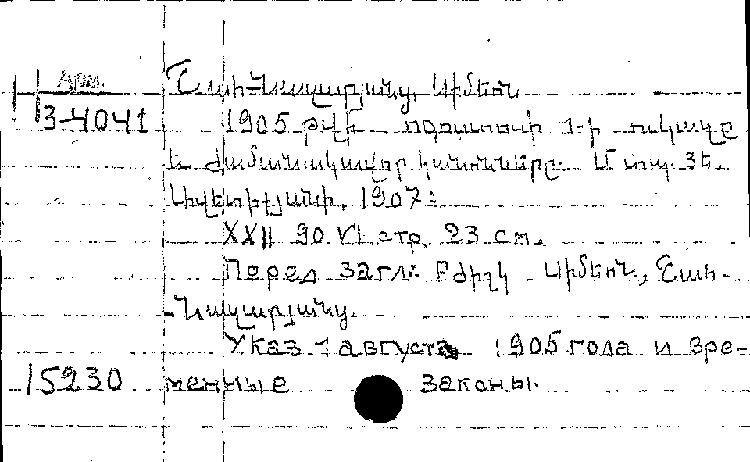 Арм.
3-4041
Շահ-Նազարյանց, Սիմեոն
1905 թվի օգոստոսի 1-ի ուկազը
և ժամանակավոր կանոնները. Մ. տպ. Յե.
1907:
XXII 90 VI стр. 23 см.
Перед загл: Բժիշկ Սիմեոն, Շահ-
-Նազարյանց.
Указ 1 августа 1905 года и вре-
15230 менные законы.